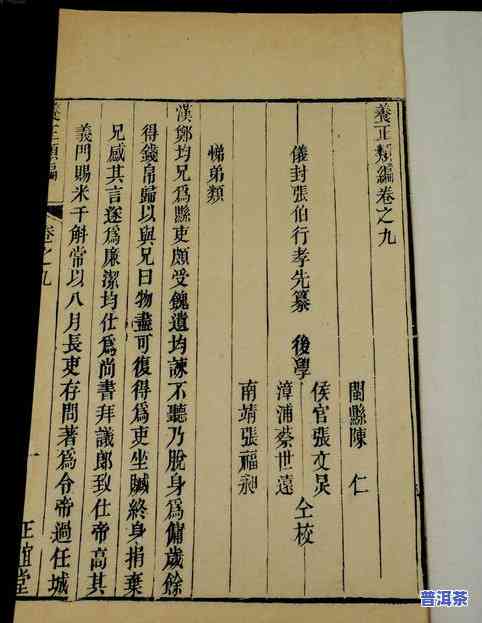 養正類編卷之九
儀封張伯行孝先纂 後學
閩縣陳 仁
侯官張文炅
漳浦蔡世遠
南靖張福昶
仝校
悌弟類
漢鄭均兄爲縣吏頗受餽遺均諫不聽乃脫身爲傭歲餘
得錢帛歸以與兄曰物盡可復得爲吏坐贓終身捐棄
兄感其言遂爲廉潔均仕爲尚書拜議郎致仕帝高其
義門賜米千斛常以八月長吏存問著爲令帝過任城
養正類編
卷之九
一
正誼堂
普洱茶